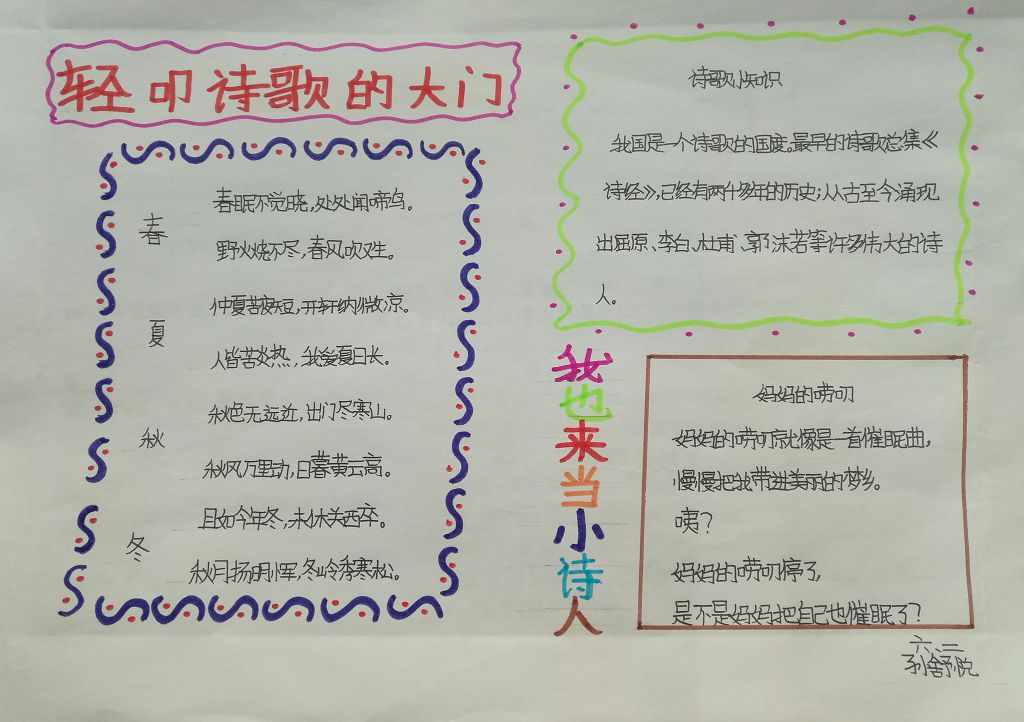 轻叩诗歌的大门
春
春眠不觉晓,处处闻啼鸟。
野火烧不尽,春风吹又生。
夏
仲夏苦夜短,开轩纳微凉。
人皆苦炎热,我爱夏日长。
秋
秋色无远近,出门尽寒山。
秋风万里动,日暮黄云高。
冬
且如今年冬,未休关西卒。
秋月扬明恽,冬岭秀寒松。
诗歌小知识
我国是一个诗歌的国度。最早的诗歌总集《
诗经》,已经有两千多年的历史;从古至今涌现
出屈原、李白、杜甫、郭沫若等许多伟大的诗
人。
我也来当小诗人
妈妈的唠叨
妈妈的唠叨就像是一首催眠曲,
慢慢把我带进美丽的梦乡。
咦?
妈妈的唠叨停了,
是不是妈妈把自己也催眠了?
六、二
孙舒悦